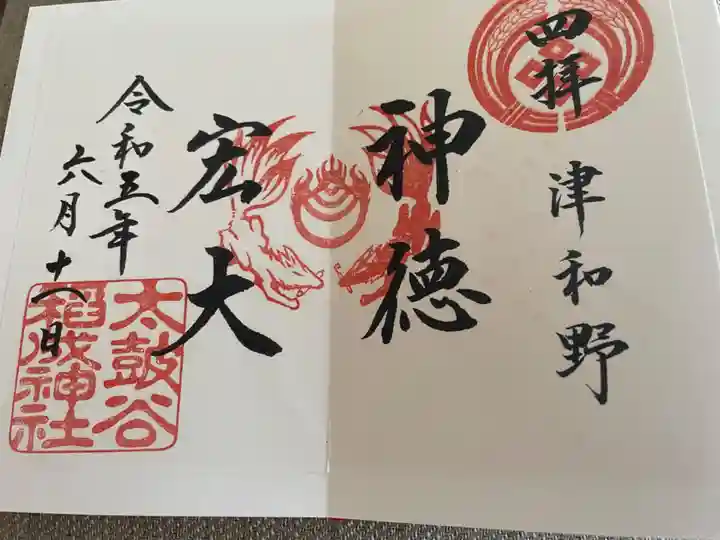 四拝
津和野
神徳
宏大
令和五年
六月十八日
太鼓谷
稲成神社